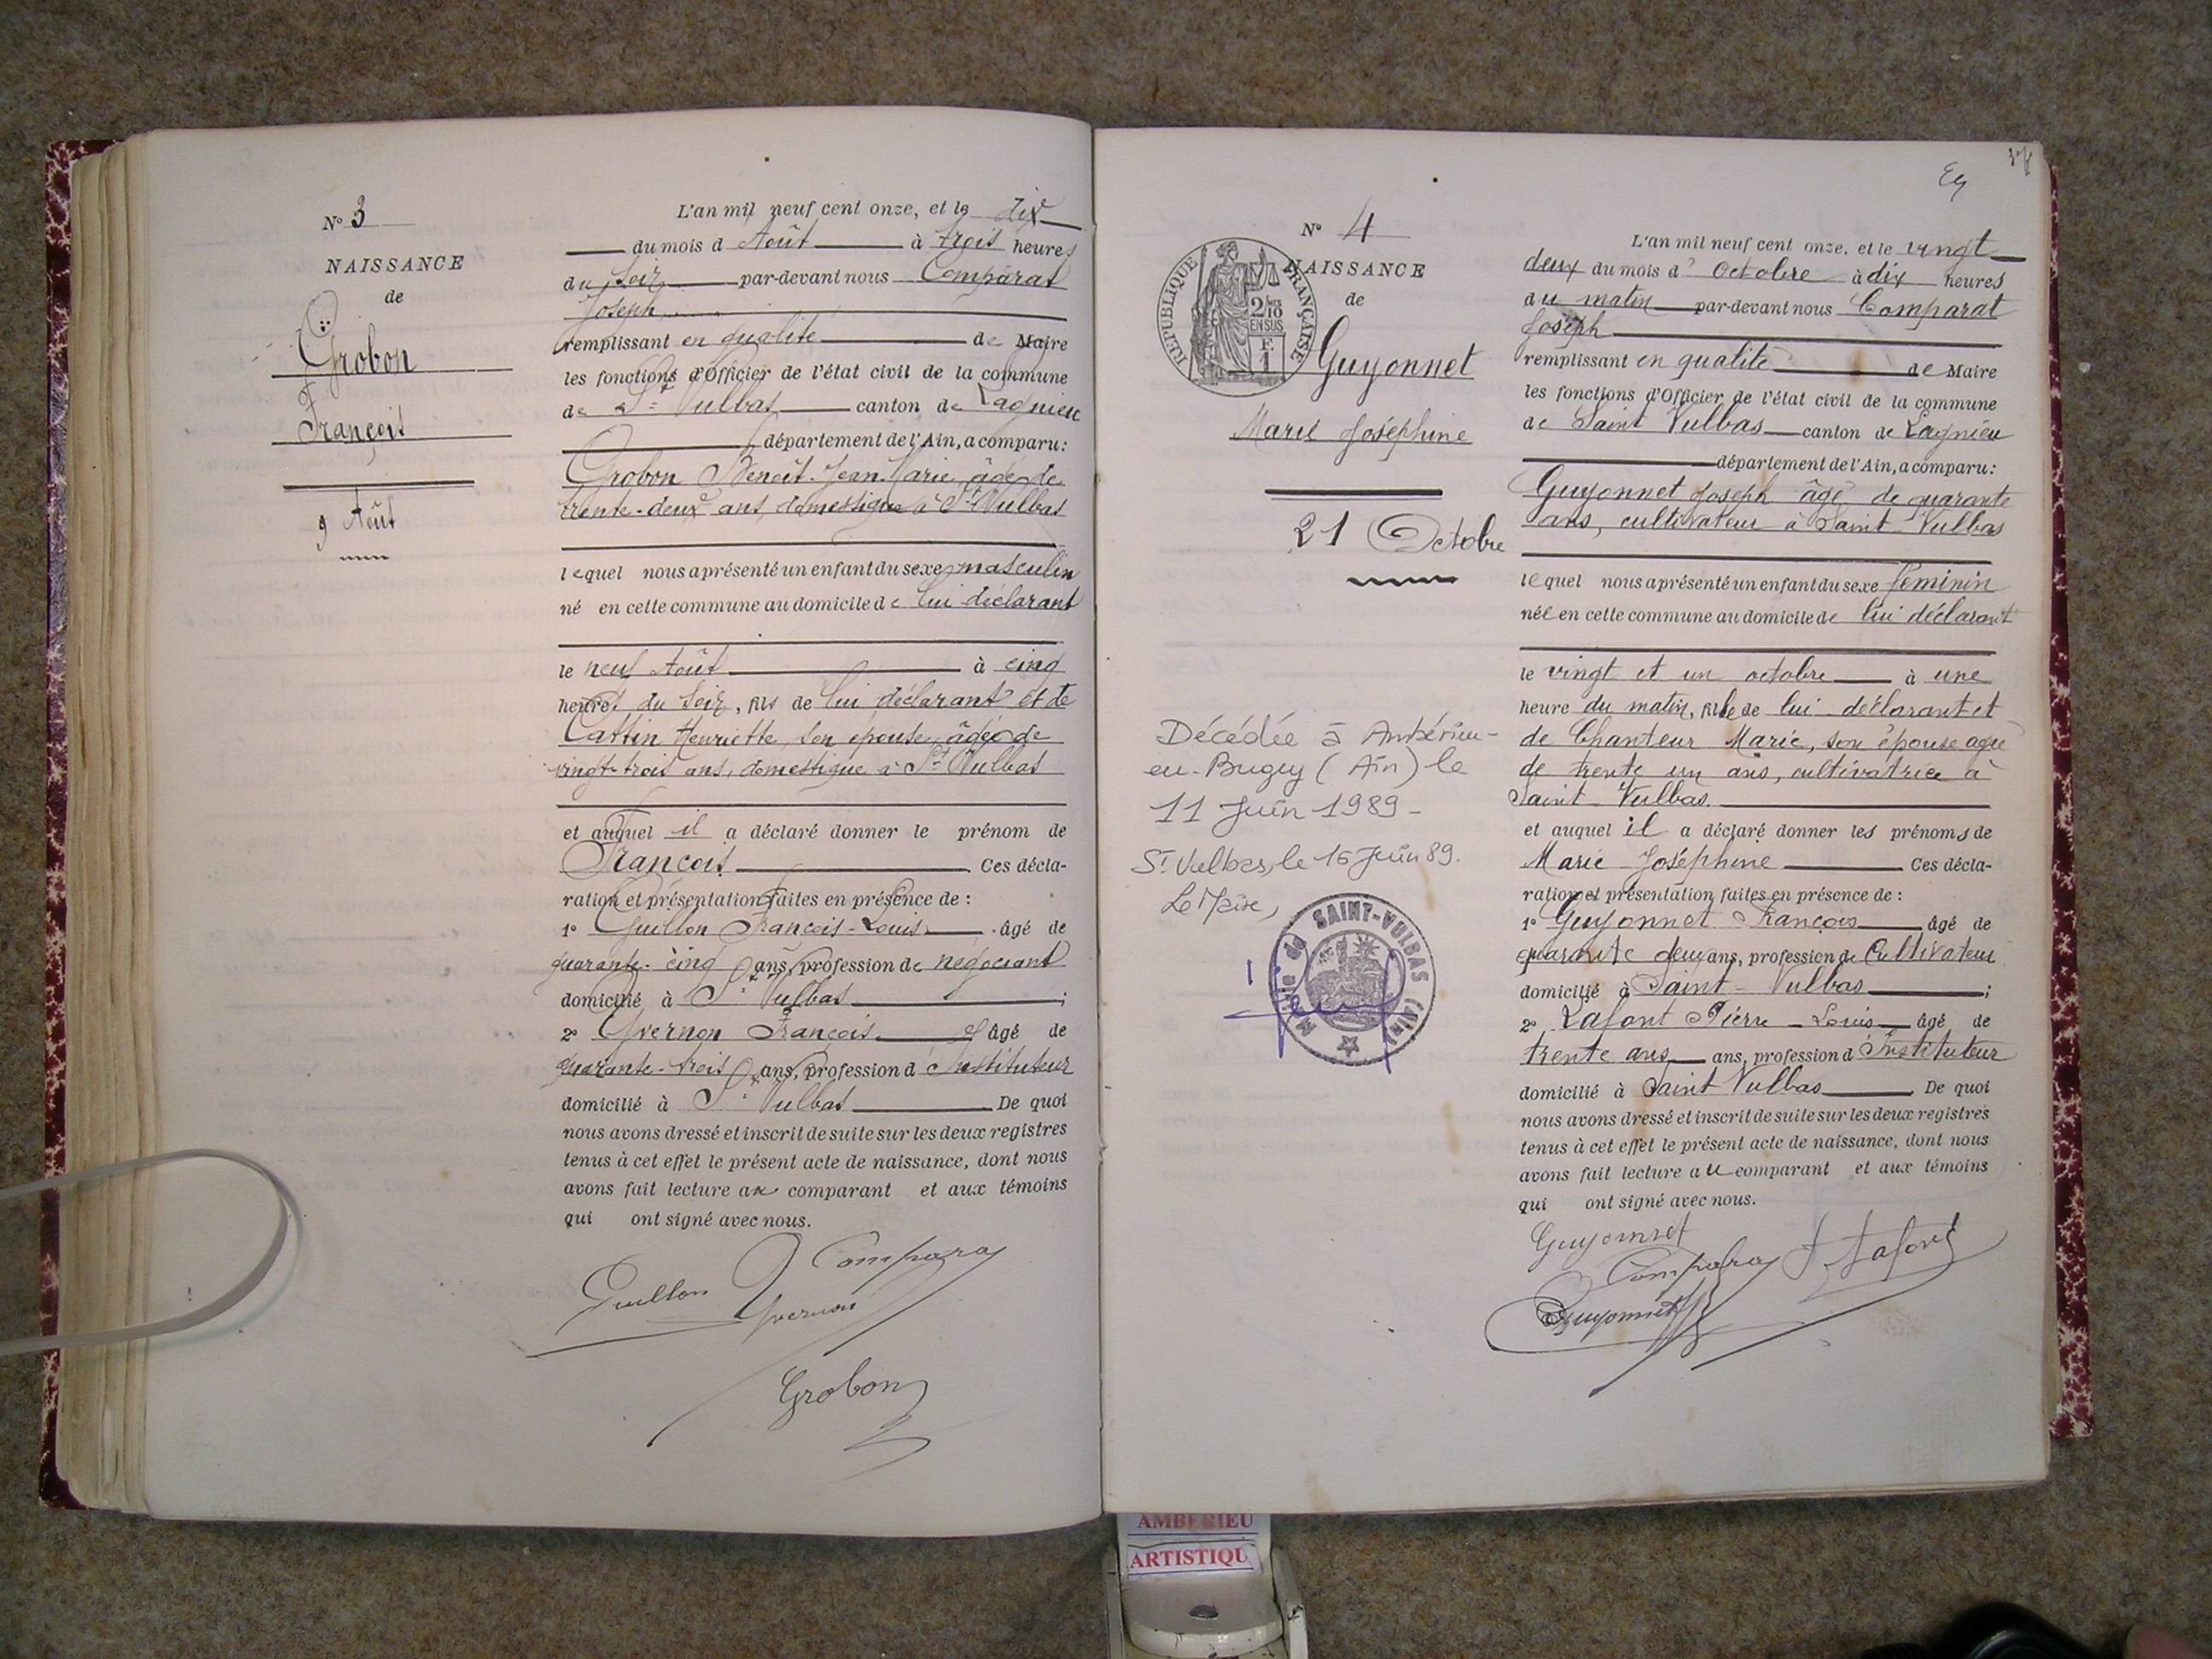 N° 3
NAISSANCE
de
Grobon
François
9 Août
L'an mil neuf cent onze, et le dix
du mois d Août à trois heures
du soir par-devant nous Comparat
Joseph
remplissant en qualité de Maire
les fonctions d'Officier de l'état civil de la commune
de St Vulbas canton de Lagnieu
département de l'Ain, a comparu:
Grobon Benoît-Jean-Marie, âgé de
trente-deux ans, domestique à St Vulbas
lequel nous a présenté un enfant du sexe masculin
né en cette commune au domicile de lui déclarant
le neuf Août à cinq
heures du soir, fils de lui déclarant et de
Cattin Henriette, son épouse, âgée de
vingt-trois ans, domestique à St Vulbas
et auquel il a déclaré donner le prénom de
François Ces décla-
ration et présentation faites en présence de :
1° Guillon François-Louis âgé de
quarante-cinq ans, profession de négociant
domicilié à St Vulbas ;
2° Yvernon François âgé de
quarante-trois ans, profession d'Instituteur
domicilié à St Vulbas De quoi
nous avons dressé et inscrit de suite sur les deux registres
tenus à cet effet le présent acte de naissance, dont nous
avons fait lecture au comparant et aux témoins
qui ont signé avec nous.
Comparat
Guillon
Yvernon
Grobon
N° 4
NAISSANCE
de
RÉPUBLIQUE FRANÇAISE
2/10
EN SUS
F.
1
Guyonnet
Marie Joséphine
21 Octobre
Décédée à Ambérieu-
en-Bugey (Ain) le
11 Juin 1989 -
St Vulbas, le 16 Juin 89.
Le Maire,
Mairie de SAINT-VULBAS (Ain)
L'an mil neuf cent onze, et le vingt
deux du mois d' Octobre à dix heures
du matin par-devant nous Comparat
Joseph
remplissant en qualité de Maire
les fonctions d'Officier de l'état civil de la commune
de Saint Vulbas canton de Lagnieu
département de l'Ain, a comparu:
Guyonnet Joseph âgé de quarante
ans, cultivateur à Saint Vulbas
lequel nous a présenté un enfant du sexe féminin
née en cette commune au domicile de lui déclarant
le vingt et un octobre à une
heure du matin, fille de lui déclarant et
de Chanteur Marie, son épouse agée
de trente un ans, cultivatrice à
Saint Vulbas.
et auquel il a déclaré donner les prénoms de
Marie Joséphine Ces décla-
ration et présentation faites en présence de :
1° Guyonnet François âgé de
quarante deux ans, profession de Cultivateur
domicilié à Saint-Vulbas ;
2° Lafont Pierre-Louis âgé de
trente ans ans, profession d'Instituteur
domicilié à Saint Vulbas De quoi
nous avons dressé et inscrit de suite sur les deux registres
tenus à cet effet le présent acte de naissance, dont nous
avons fait lecture au comparant et aux témoins
qui ont signé avec nous.
Guyonnet
Comparat Lafont
Guyonnet
AMBERIEU
ARTISTIQU